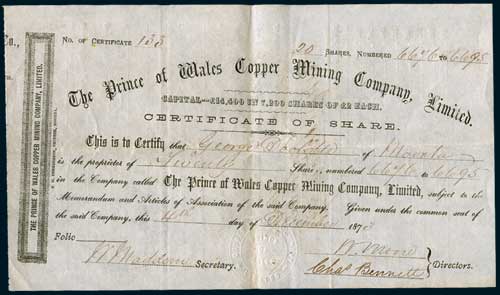 Co.,
No. of Certificate 133
20 Shares, Numbered 6676 to 6695
The Prince of Wales Copper Mining Company, Limited.
CAPITAL—£14,400 IN 7,200 SHARES OF £2 EACH.
CERTIFICATE OF SHARE.
This is to Certify that George of Moonta
is the proprietor of Twenty Share, numbered 6676 to 6695
in the Company called The Prince of Wales Copper Mining Company, Limited, subject to the
Memorandum and Articles of Association of the said Company. Given under the common seal of
the said Company, this day of 187
Folio
Secretary.
Chas Bennett
Directors.
THE PRINCE OF WALES COPPER MINING COMPANY, LIMITED.